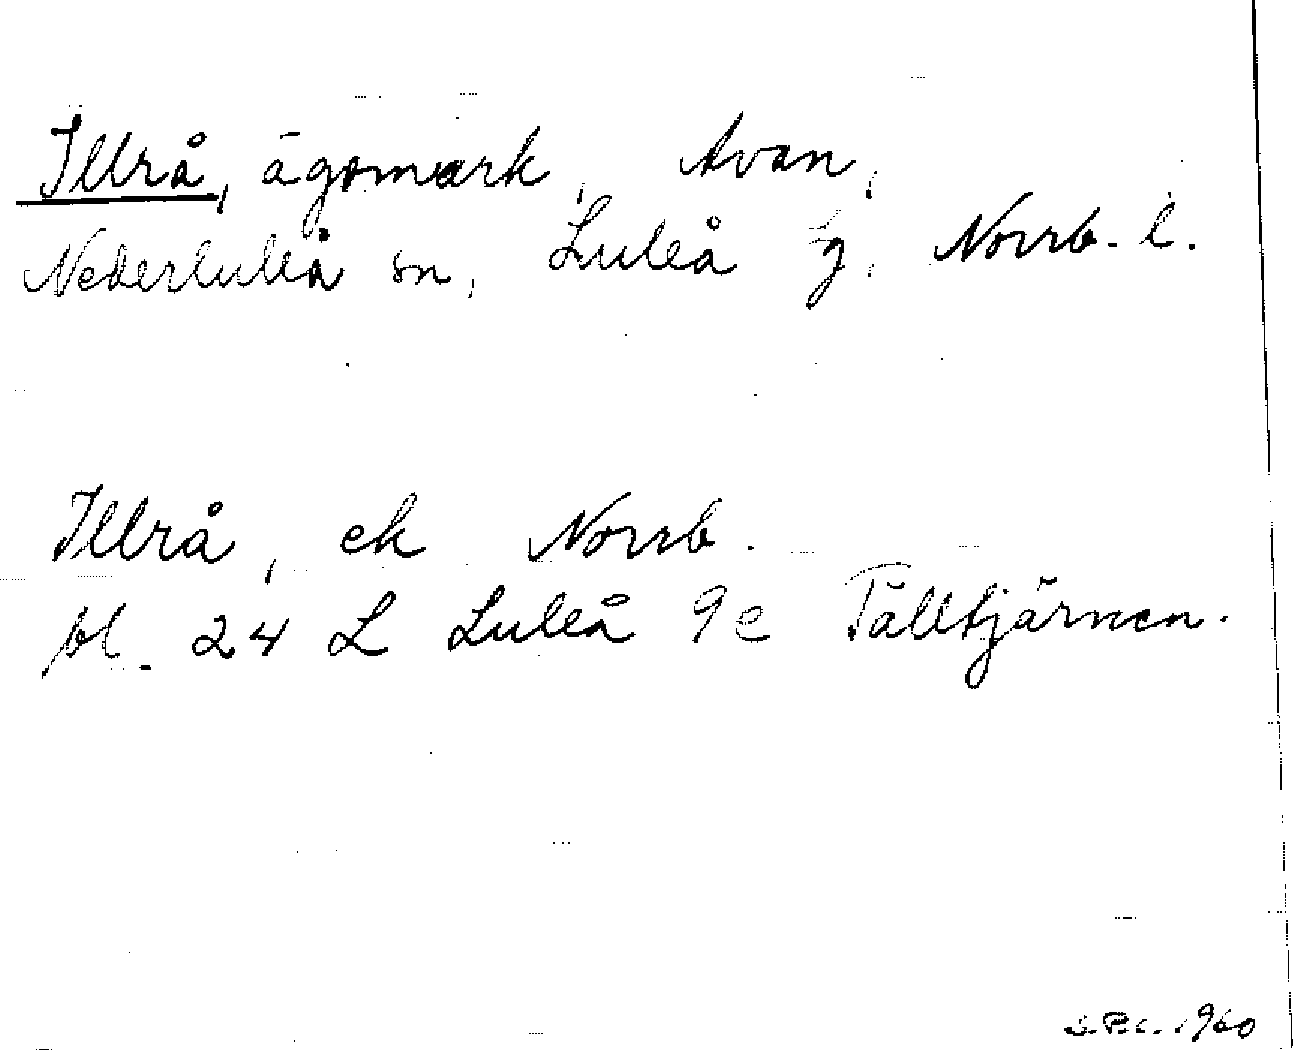 Illrå, ägomark, Avan,
Nederluleå sn, Luleå tg, Norrb. l.
Illrå, ek Norrb.
bl. 24 L Luleå 9e Tälltjärnen.
1960